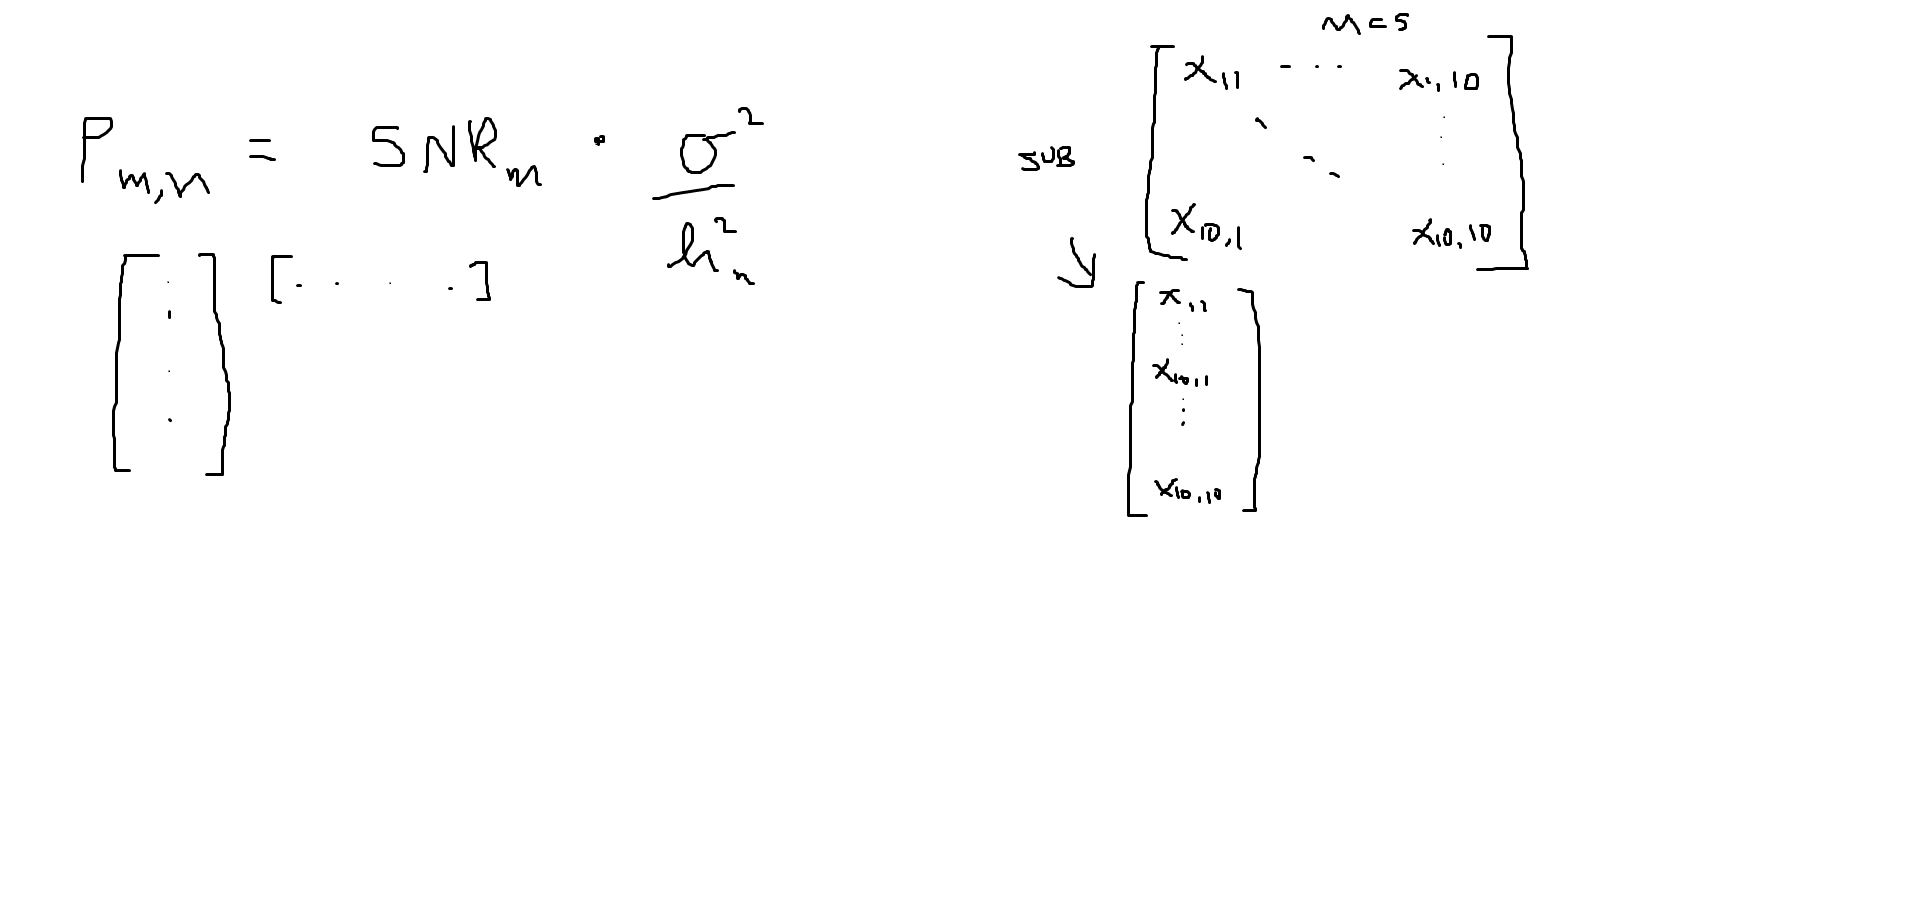 P_{m,n} = SNR_m · σ² / h_n²
[ · · · · ] [ · · · · ]
M = 5
SUB
[ x_{11} - · · · x_{1,10}
⋱ ⋮
x_{10,1} x_{10,10} ]
↓
[ x_{11}
⋮
x_{10,1}
⋮
x_{10,10} ]